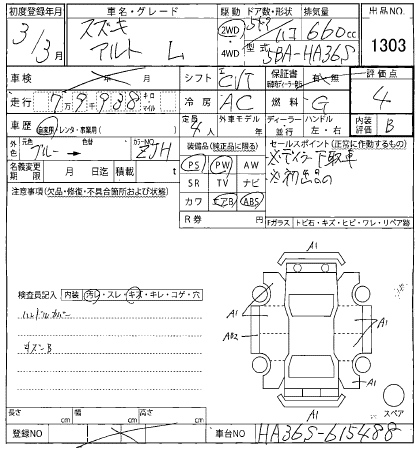 初度登録年月 車名・グレード 駆動 ドア数・形状 排気量 出品NO.
3/3月 スズキ アルト L 2WD 4WD 5ドア ハコ 660cc 型式 5BA-HA36S 1303
車検 年 月 シフト C/T 保証書 有・無 評価点
走行 7万9千988 キロ・マイル 冷房 AC 燃料 G 4
車歴 自家用・レンタ・事業用( ) 定員 4人 外車モデル 年 ディーラー・並行 ハンドル 左・右 内装評価 B
外色 元色 ブルー → 色替 カラーNO. ZJH 装備品(純正品に限る) セールスポイント(正常に作動するもの)
名義変更期限 月 日迄 積載 t PS PW AW ※ディーラー下取車
注意事項(欠品・修復・不具合箇所および状態) SR TV ナビ ※初出品の
カワ エアB ABS
R券 ¥ Fガラス・トビ石・キズ・ヒビ・ワレ・リペア跡
検査員記入 内装 汚れ・スレ・キズ・キレ・コゲ・穴
ハンドルカバー
キズンB
A1
A1
A1
A1
AU2
A1
A1
スペア
長さ cm 幅 cm 高さ cm
登録NO 車台NO HA36S-615488